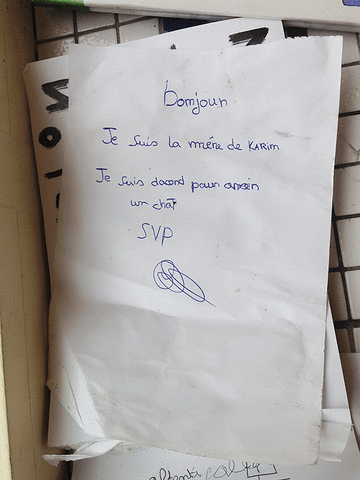 Bomjour
Je suis la mére de KARIM
Je suis dacond pour
un chat
SVP